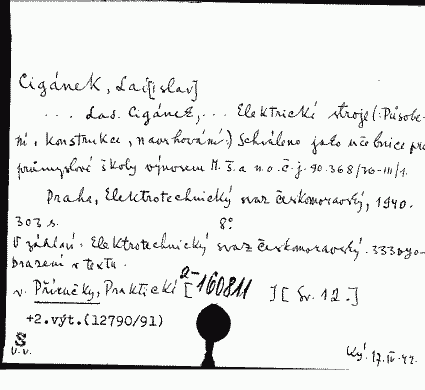 Cigánek, Lad[islav]
... Lad. Cigánek, ... Elektrické stroje (: Působe-
ní, konstrukce, navrhování :) Schváleno jako učebnice pro
průmyslové školy výnosem M. š. a n. o. č. j. 90.368/40-III/1.
Praha, Elektrotechnický svaz českomoravský, 1940.
303 s. 8°
V záhlaví: Elektrotechnický svaz českomoravský. 333 vyo-
brazení v textu.
v. Příručky, Praktické [2-160811 ] [ Sv. 12.]
+2.výt.(12790/91)
S
V.-V.
Ký. 17.IV.42.